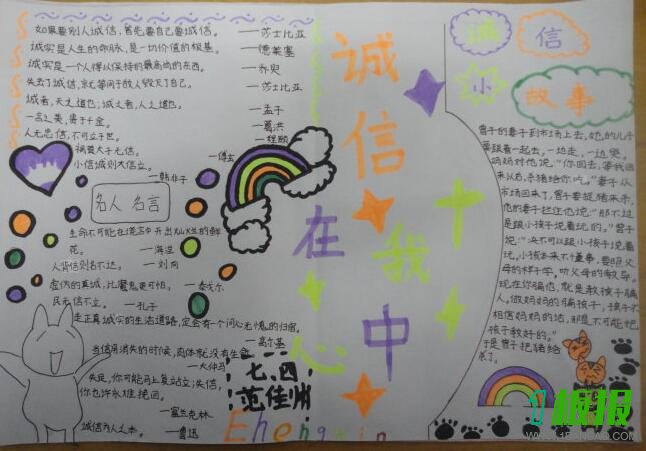 如果要别人诚信，首先要自己要诚信。
——莎士比亚
诚实是人生的命脉，是一切价值的根基。
——德莱塞
诚实是一个人得以保持的最高尚的东西。
——乔叟
失去了诚信，就等同于敌人毁灭了自己。
——莎士比亚
诚者，天之道也；诚之者，人之道也。
——孟子
一言之美，贵于千金。
——葛洪
人无忠信，不可立于世。
——程颐
祸莫大于无信。
——傅玄
小信诚则大信立。
——韩非子
名人 名言
生命不可能在谎言中开出灿烂的鲜
花。
——海涅
人背信则名不达。
——刘向
虚伪的真诚，比魔鬼更可怕。
——泰戈尔
民无信不立。
——孔子
走正直诚实的生活道路，定会有一个问心无愧的归宿。
——高尔基
当信用消失的时候，肉体就没有生命
——大仲马
失足，你可能马上复站立，失信，
你也许永难挽回。
——富兰克林
诚信为人之本。
——鲁迅
七四
诚信
在
我
心
中
诚信
小
故事
曾子的妻子到市场上去，她的儿子
要跟着一起去，一边走，一边哭。
妈妈对他说：“你回去，等我回
来以后，杀猪给你吃。”妻子从
市场回来了，曾子要捉猪来杀，
他的妻子拦住他说：“那不过
是跟小孩子说着玩的。”曾子
说：“决不可以跟小孩子说着
玩。小孩本来不懂事，要照父
母的样子学，听父母的教导。
现在你骗他，就是教孩子骗
人。做妈妈的骗孩子，孩子不
相信妈妈的话，那是不可能把
孩子教好的。”
于是曾子把猪给
杀了。
板报
WWW.1BANBAO.COM